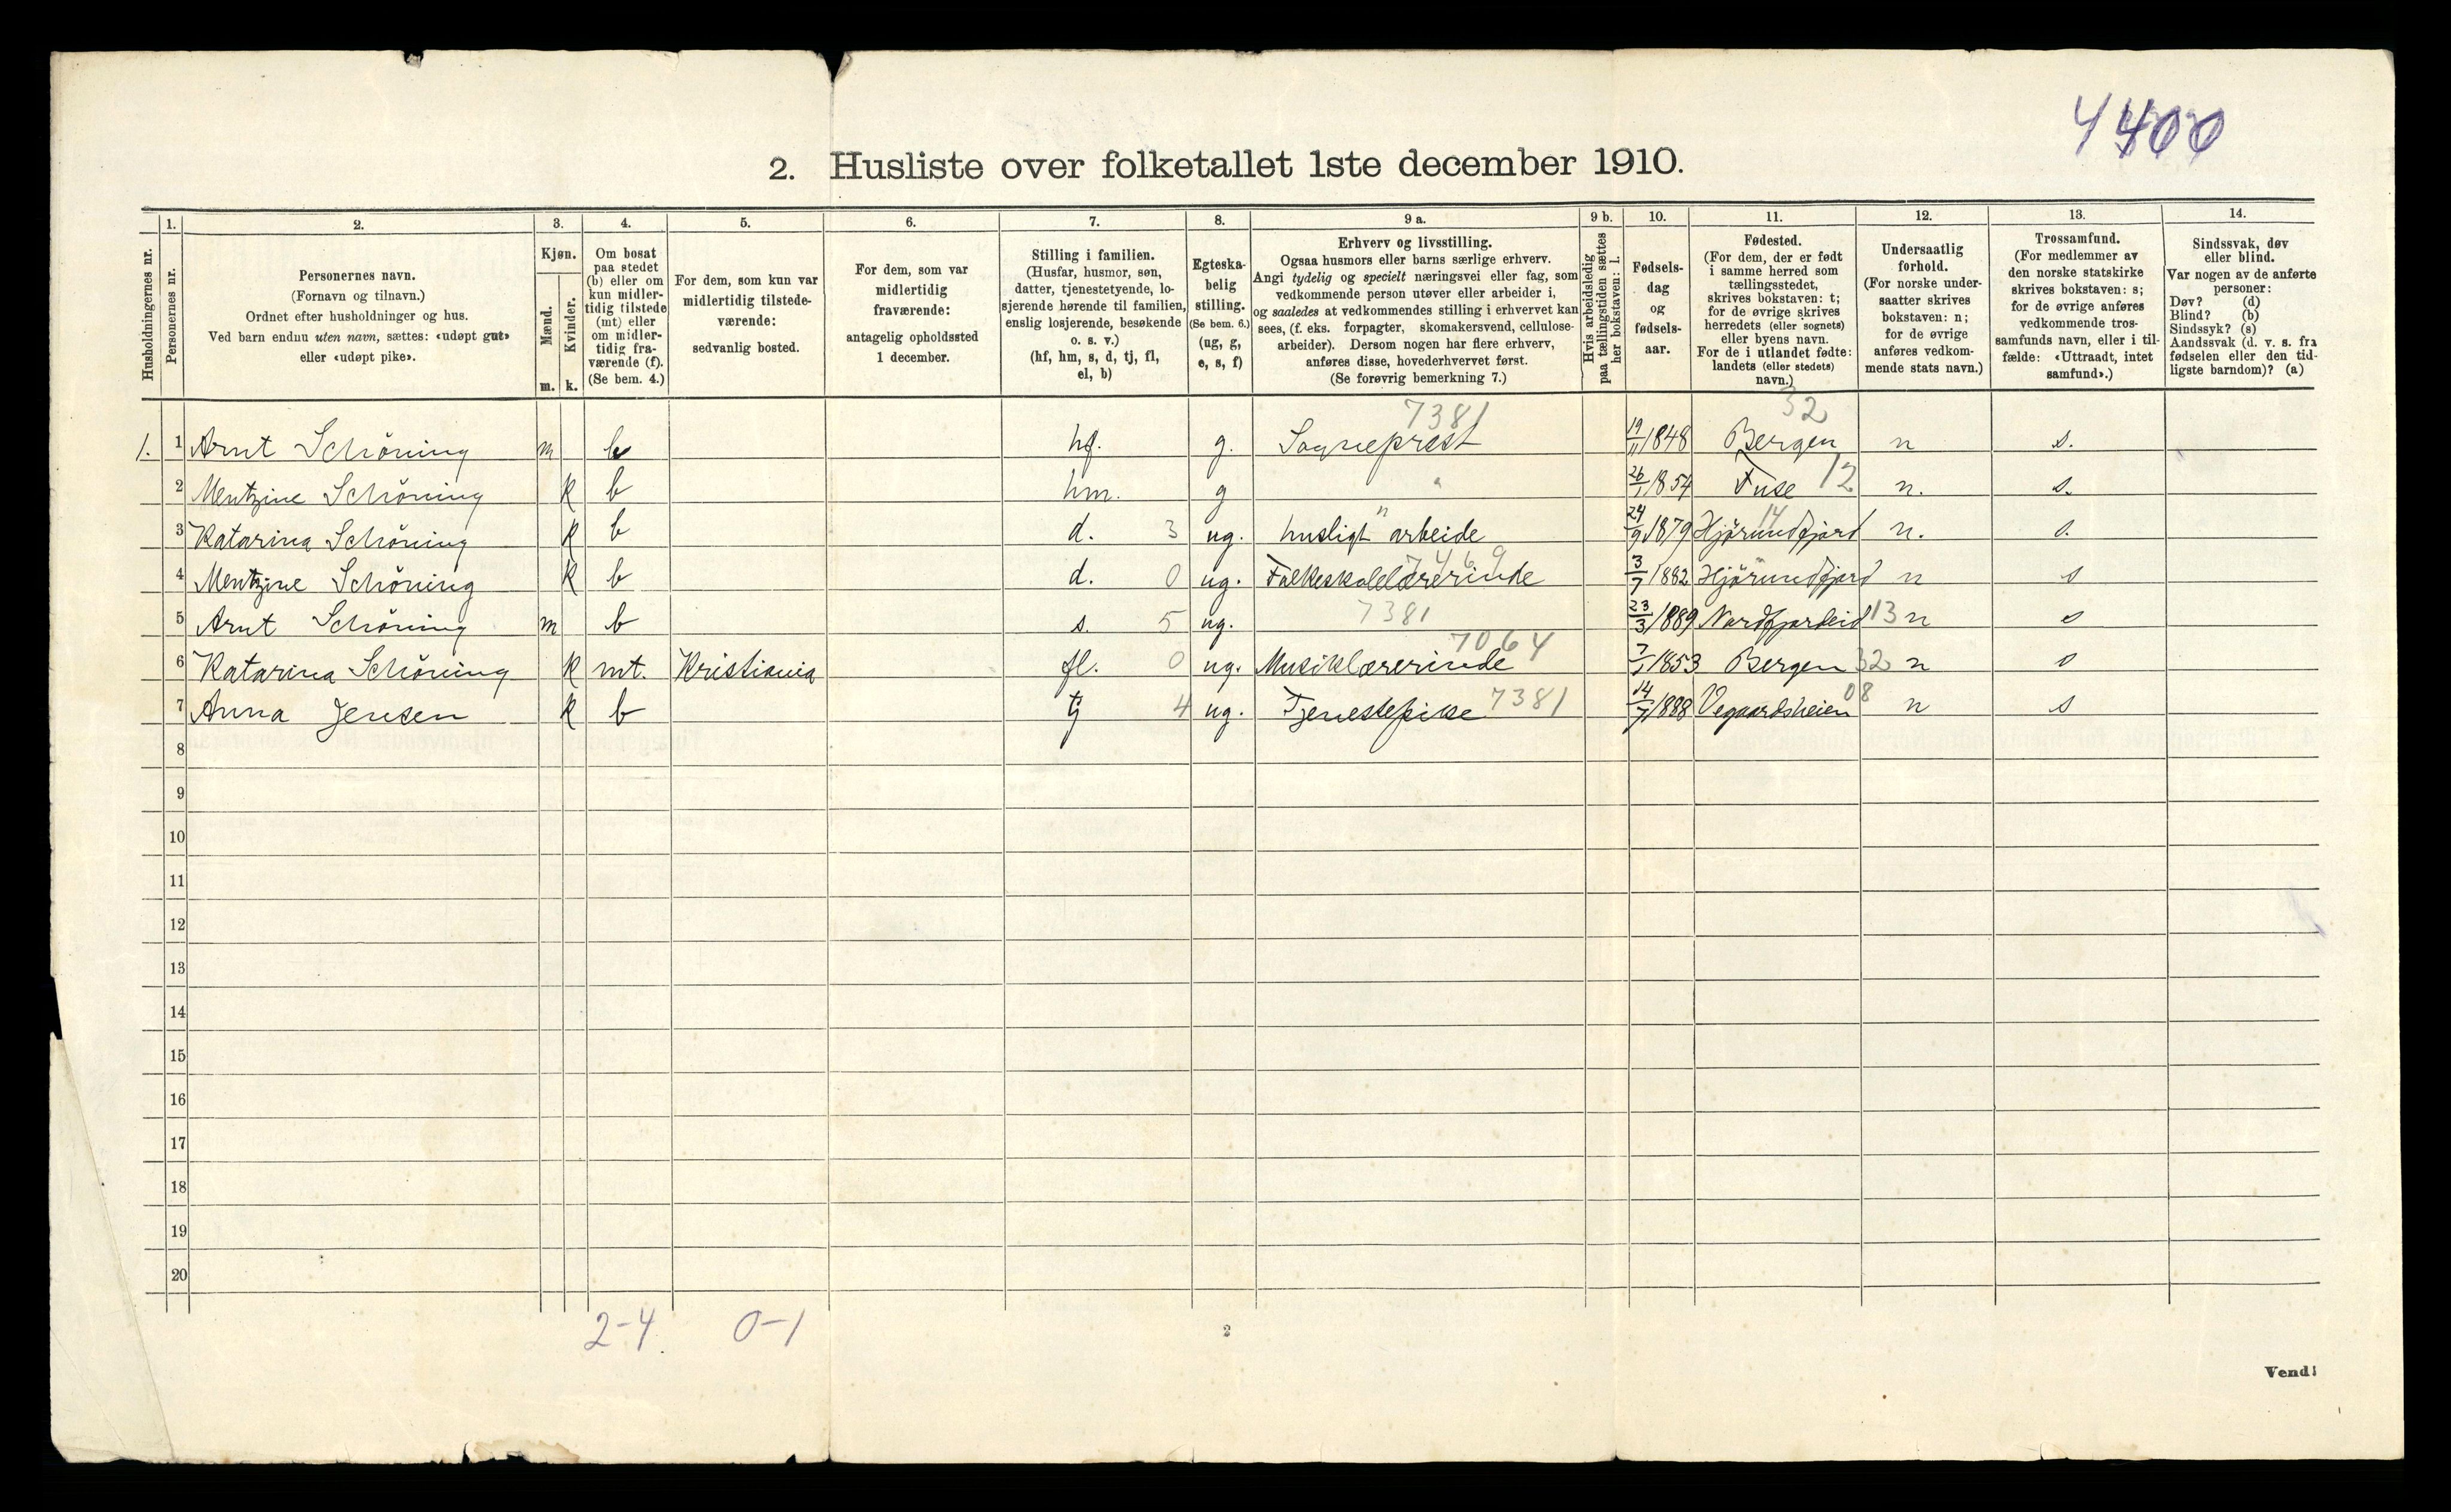 4400
2. Husliste over folketallet 1ste december 1910.
Husholdningernes nr.
1.
Personernes nr.
2.
Personernes navn.
(Fornavn og tilnavn.)
Ordnet efter husholdninger og hus.
Ved barn endnu uten navn, sættes: «udøpt gut»
eller «udøpt pike».
3.
Kjøn.
Mænd.
m.
Kvinder.
k.
4.
Om bosat
paa stedet
(b) eller om
kun midler-
tidig tilstede
(mt) eller
om midler-
tidig fra-
værende (f).
(Se bem. 4.)
5.
For dem, som kun var
midlertidig tilstede-
værende:
sedvanlig bosted.
6.
For dem, som var
midlertidig
fraværende:
antagelig opholdssted
1 december.
7.
Stilling i familien.
(Husfar, husmor, søn,
datter, tjenestetyende, lo-
sjerende hørende til familien,
enslig losjerende, besøkende
o. s. v.)
(hf, hm, s, d, tj, fl,
el, b)
8.
Egteska-
belig
stilling.
(Se bem. 6.)
(ug, g,
e, s, f)
9 a.
Erhverv og livsstilling.
Ogsaa husmors eller barns særlige erhverv.
Angi tydelig og specielt næringsvei eller fag, som
vedkommende person utøver eller arbeider i,
og saaledes at vedkommendes stilling i erhvervet kan
sees, (f. eks. forpagter, skomakersvend, cellulose-
arbeider). Dersom nogen har flere erhverv,
anføres disse, hovederhvervet først.
(Se forøvrig bemerkning 7.)
9 b.
Hvis arbeidsledig
paa tællingstiden sættes
her bokstaven: l.
10.
Fødsels-
dag
og
fødsels-
aar.
11.
Fødested.
(For dem, der er født
i samme herred som
tællingsstedet,
skrives bokstaven: t;
for de øvrige skrives
herredets (eller sognets)
eller byens navn.
For de i utlandet fødte:
landets (eller stedets)
navn.)
12.
Undersaatlig
forhold.
(For norske under-
saatter skrives
bokstaven: n;
for de øvrige
anføres vedkom-
mende stats navn.)
13.
Trossamfund.
(For medlemmer av
den norske statskirke
skrives bokstaven: s;
for de øvrige anføres
vedkommende tros-
samfunds navn, eller i til-
fælde: «Uttraadt, intet
samfund».)
14.
Sindssvak, døv
eller blind.
Var nogen av de anførte
personer:
Døv? (d)
Blind? (b)
Sindssyk? (s)
Aandssvak (d. v. s. fra
fødselen eller den tid-
ligste barndom)? (a)
7381 32
1. 1 Arnt Schöning m b hf. g. Sogneprest 19/11 1848 Bergen n s.
2 Mentzine Schöning k b hm. g " 26/1 1854 Fuse 12 n. s.
3 Katarina Schöning k b d. 3 ug. husligt arbeide " 24/9 1879 Hjörundfjord 14 n. s.
4 Mentzine Schöning k b d. 0 ug. Folkeskolelærerinde 7469 3/7 1882 Hjörundfjord " n s
5 Arnt Schöning m b s. 5 ug. 7381 23/3 1889 Nordfjordeid 13 n s
6 Katarina Schöning k mt. Kristiania fl. 0 ug. Musiklærerinde 7064 7/1 1853 Bergen 32 n s
7 Anna Jensen k b tj 4 ug. Tjenestepike 7381 14/7 1888 Vegaardsheien 08 n s
8
9
10
11
12
13
14
15
16
17
18
19
20
2-4 0-1
2
Vend!